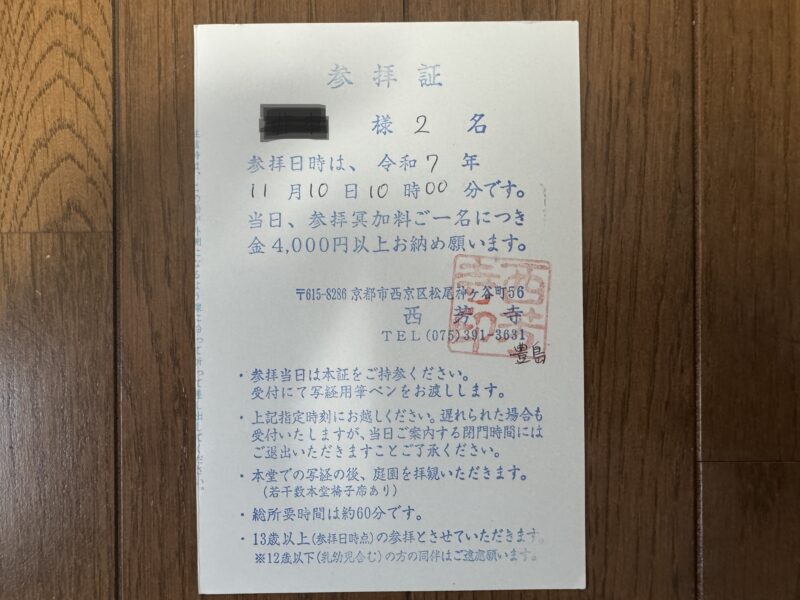 参拝証
様 2 名
参拝日時は、令和 7 年
11 月 10 日 10 時 00 分です。
当日、参拝冥加料ご一名につき
金4,000円以上お納め願います。
〒615-8286 京都市西京区松尾神ヶ谷町56
西芳寺
TEL(075)391-3631
西芳寺印
豊島
・参拝当日は本証をご持参ください。
受付にて写経用筆ペンをお渡しします。
・上記指定時刻にお越しください。遅れられた場合も
受付いたしますが、当日ご案内する閉門時間には
ご退出いただきますことご了承ください。
・本堂での写経の後、庭園を拝観いただきます。
（若干数本堂椅子席あり）
・総所要時間は約60分です。
・13歳以上(参拝日時点)の参拝とさせていただきます。
※12歳以下(乳幼児含む)の方の同伴はご遠慮願います。